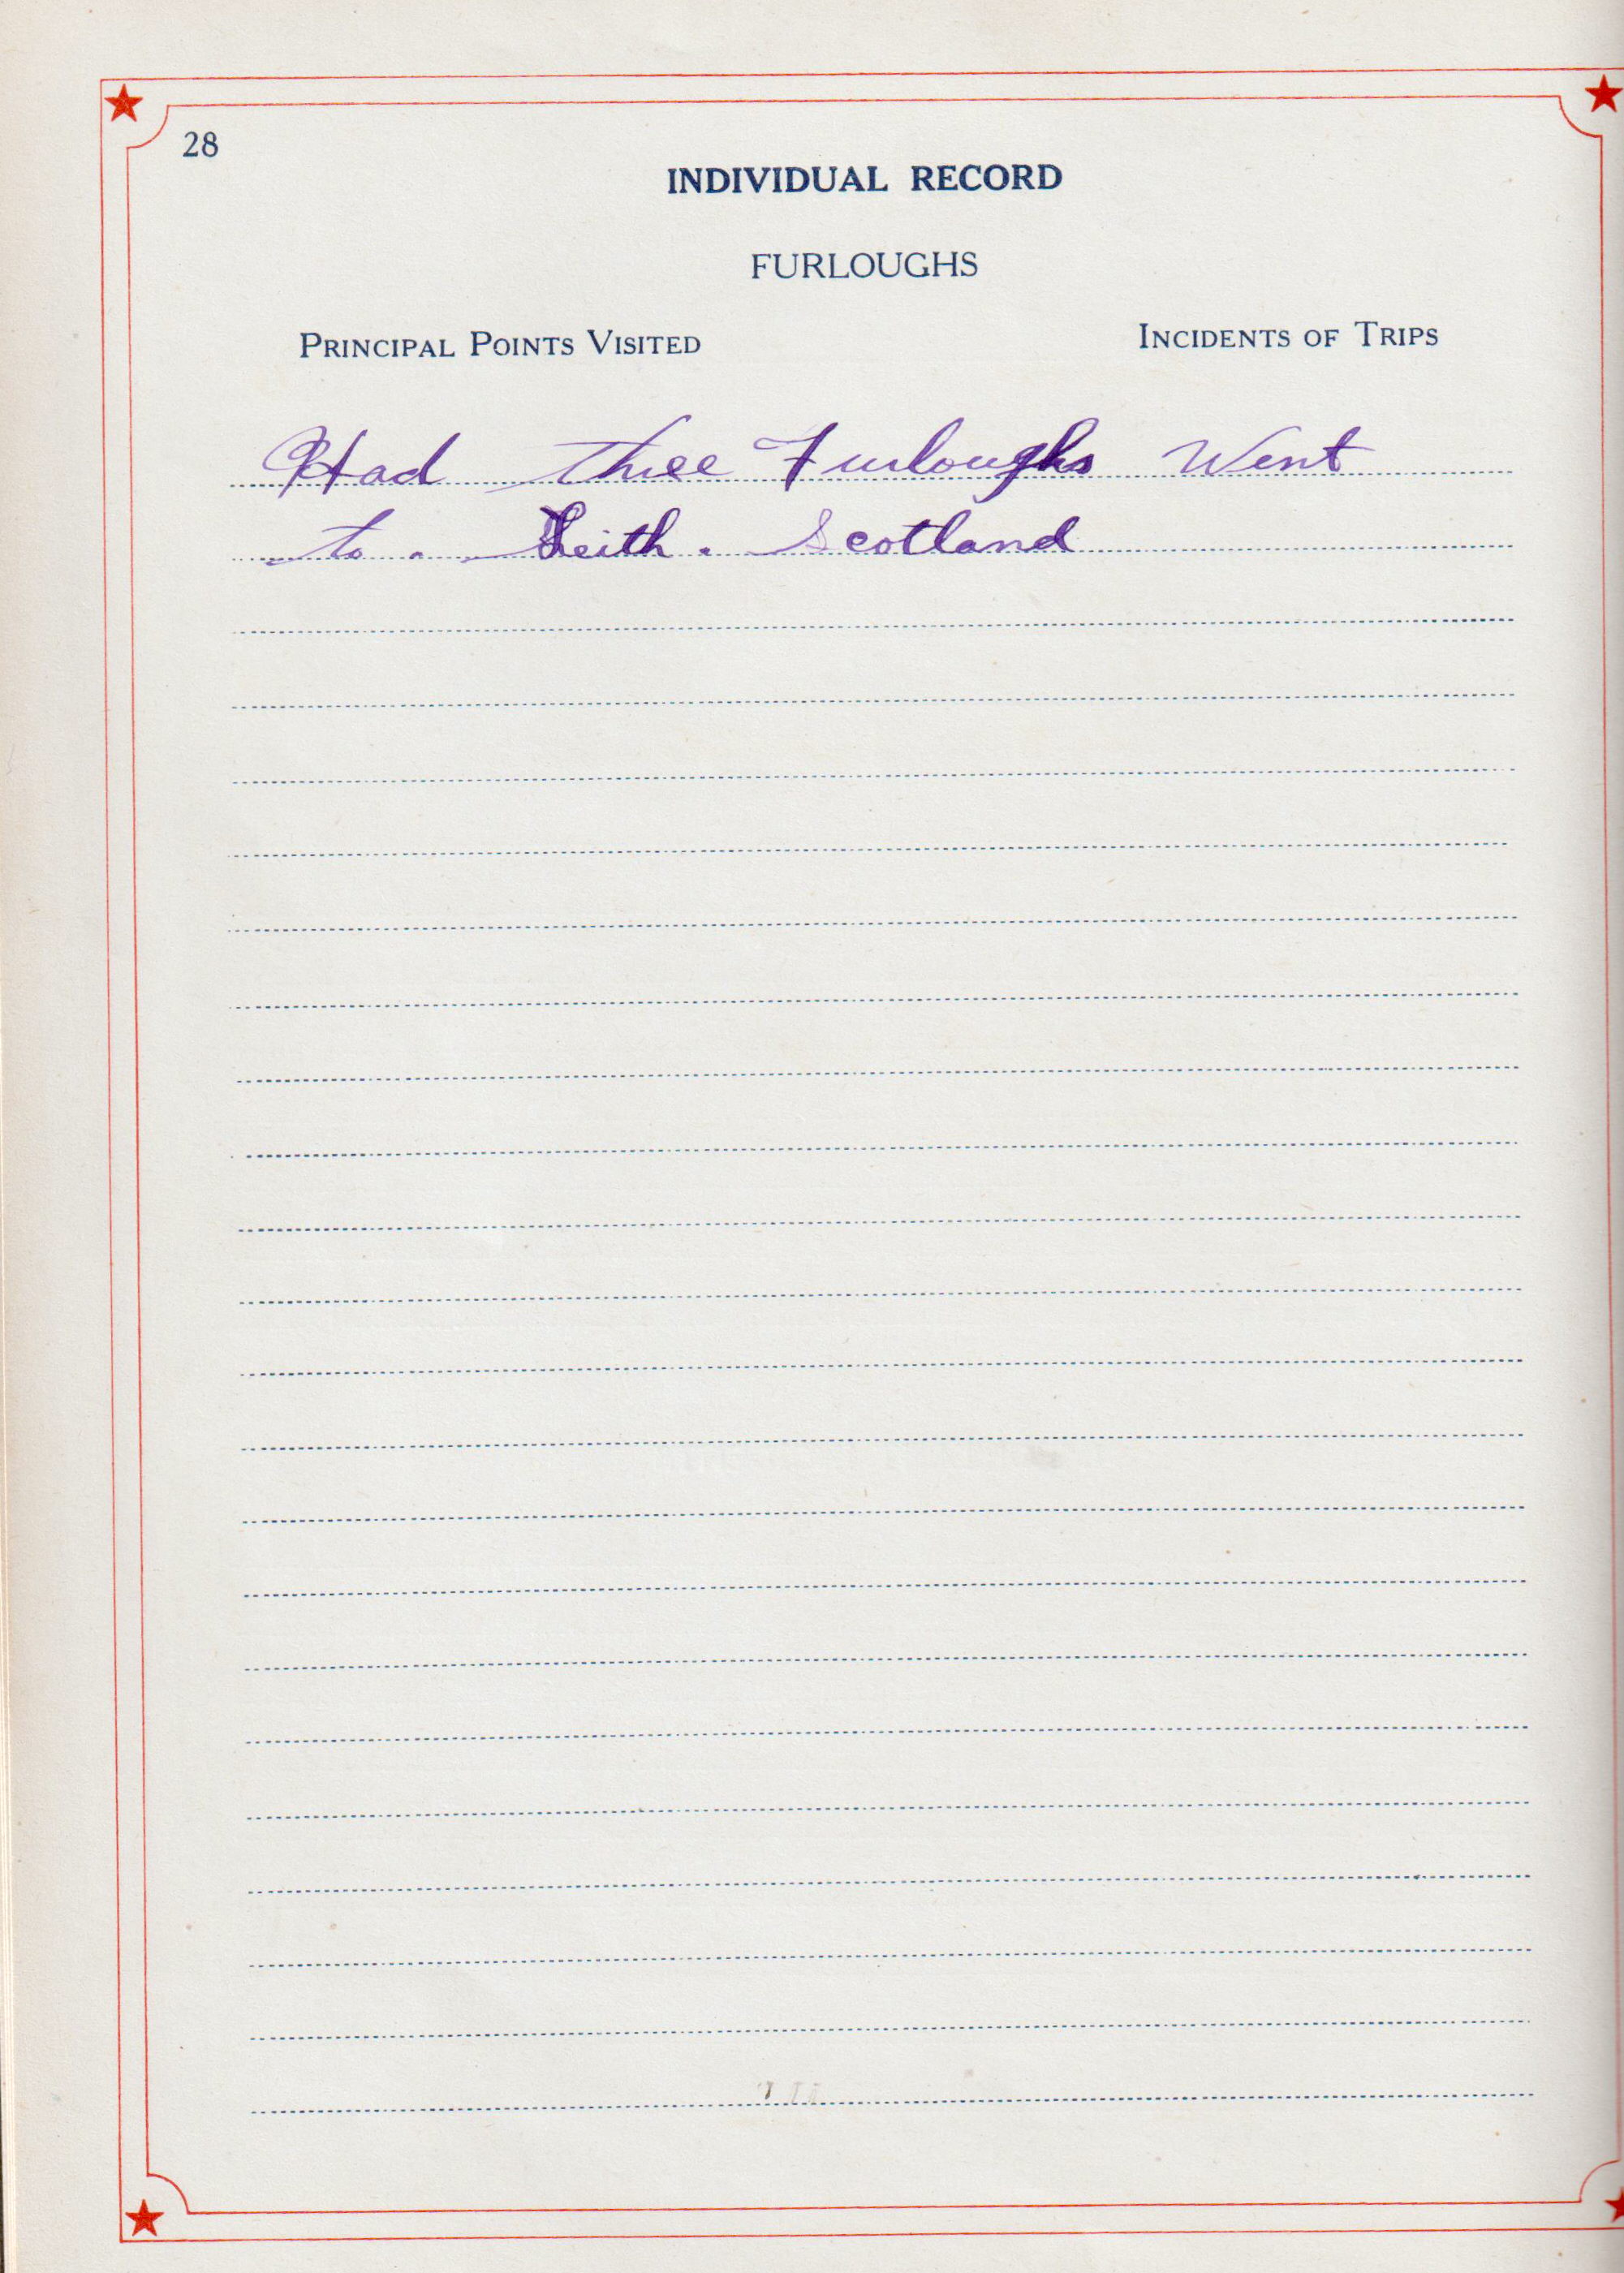 28
INDIVIDUAL RECORD
FURLOUGHS
PRINCIPAL POINTS VISITED INCIDENTS OF TRIPS
Had three Furloughs Went
to Leith. Scotland